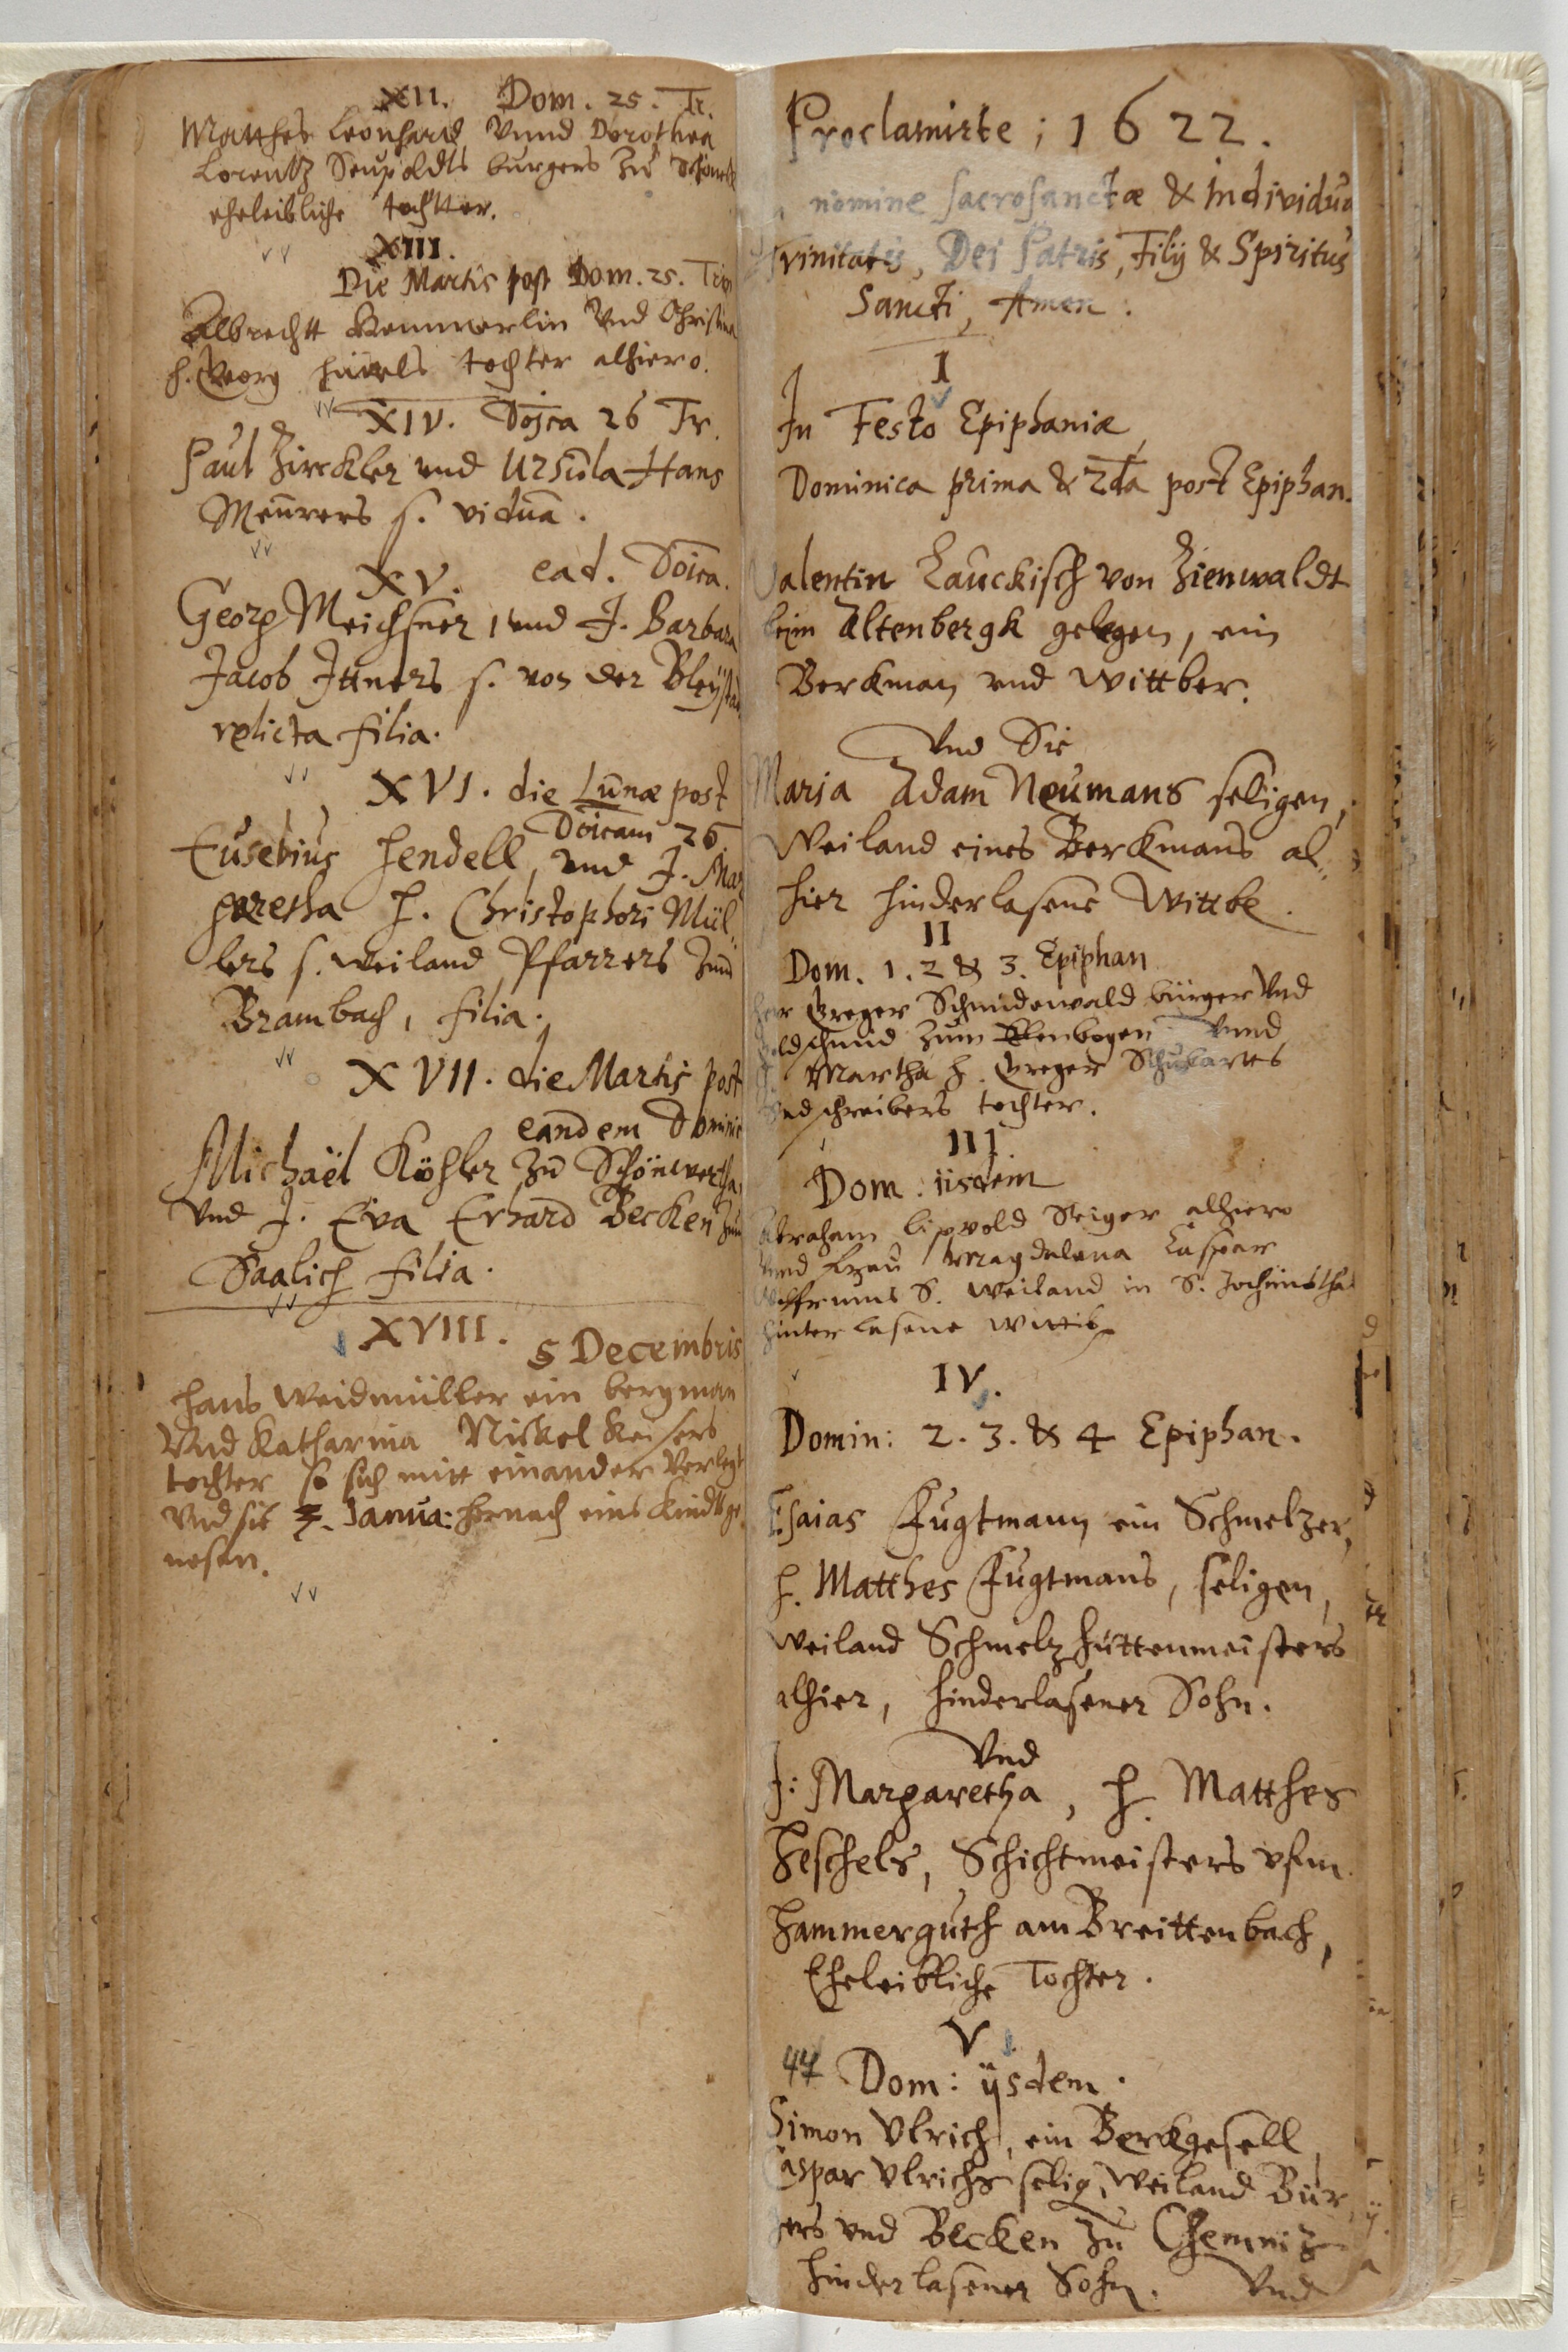 XII. Dom. 25. Tr.
Matthes Leonhard Vnnd Dorothea
Lorentz Seupoldts burgers zu Schöneck
eheleibliche tochtter.
XIII.
Die Martis post Dom. 25. Trin
Albrechtt Kemmerlin Vnd Christina
H. Georg tochter alhiero.
XIV. Doica 26 Tr.
Paul Zirckler vnd Ursula Hans
Meurers s. vidua.
XV. ead. Doica.
Georg Meichsner, vnd J. Barbara
Jacob Ittners s. von der Bleystad
relicta filia.
XVI. die Lunæ post
Doicam 26
Eusebius Hendell, vnd J. Mar
garetha H. Christophori Mül-
lers s. weiland Pfarrers zum
Brambach, filia.
XVII. die Martis post
eandem Dominic
Michaël Köhler zu Schönwertha,
vnd J. Eva Erhard Becken zum
Saalich filia.
XVIII. 5 Decembris
Hans Weidmüller ein bergman
Vnd Katharina Nickel Keisers
tochter so sich mitt einander Verlegt
Vnd sie Janua: hernach eins Kindts ge-
nesen.
Proclamirte; 1622.
nomine sacrosanctæ & individuæ
Trinitatis, Dei Patris, Filij & Spiritus
Sancti, Amen.
I
In Festo Epiphaniæ,
Dominica prima & 2da post Epiphan.
Valentin Lauckisch von Zienwaldt
beim Altenbergk gelegen, ein
Berckman vnd Wittber.
Vnd Sie
Maria Adam Neumans seligen,
Weiland eines Berckmans al-
hier hinderlasene Wittbe.
II
Dom. 1. 2 & 3. Epiphan
Herr Greger Schmidewald bürger Vnd
goldschmid zum Elenbogen Vnnd
J. Martha H. Greger Schubartes
tochter.
III
Dom: iisdem
Abraham Lippold Steiger alhiero
Vnnd Frau Magdalena Caspar
Wolfrums S. Weiland in S. Jochimsthal
hinterlasene Wittib
IV.
Domin: 2. 3. & 4 Epiphan.
Esaias Fugtmann ein Schmelzer,
H. Matthes Fugtmans, seligen,
weiland Schmelzhüttenmeisters
alhier, hinderlasener Sohn.
Vnd
J: Margaretha, H. Matthes
Heschels, Schichtmeisters vfm
Hammerguth am Breittenbach,
Eheleibliche Tochter.
V
44 Dom: ijsdem.
Simon Vlrich, ein Berckgesell,
Caspar Vlrichs selig, Weiland Bür-
gers vnd Becken zu Chemniz
hinderlasener Sohn. Vnd